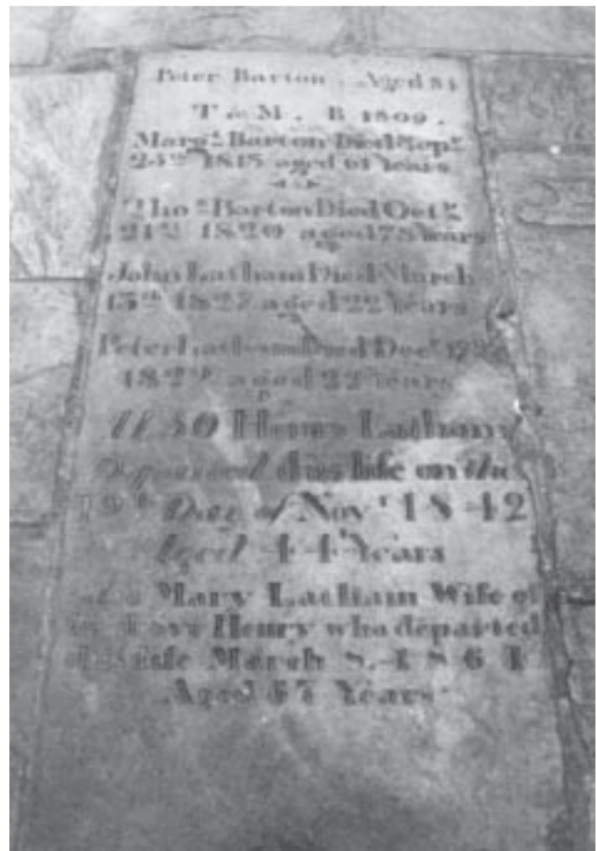 Peter Barton . Aged 84
T & M . B 1809 .
Marg.t Barton Died Sep.r
24.th 1815 aged 61 Years
Tho.s Barton Died Oct.r
21.st 1820 aged 78 Years
John Latham Died March
13.th 1827 aged 22 Years
Peter Latham Died Dec.r
aged 22 Years
ALSO Henry Latham
Departed this life on the
Day of Nov.r 1842
Aged 44 Years
Mary Latham Wife of
Henry who departed
this life March 8. 1864
Aged Years